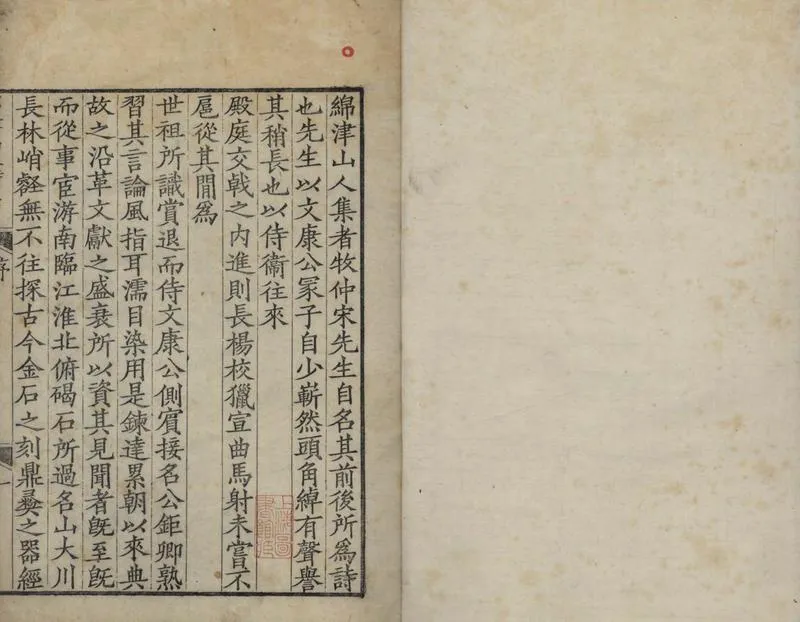 綿津山人集者牧仲宋先生自名其前後所爲詩
也先生以文康公冢子自少嶄然頭角綽有聲譽
其稍長也以侍衞往來
殿庭交戟之内進則長楊校獵宣曲馬射未嘗不
扈從其閒爲
世祖所識賞退而侍文康公側賓接名公鉅卿熟
習其言論風指耳濡目染用是鍊達累朝以來典
故之沿革文獻之盛衰所以資其見聞者旣至旣
而從事宦游南臨江淮北俯碣石所過名山大川
長林峭壑無不往探古今金石之刻鼎彝之器經
序
一